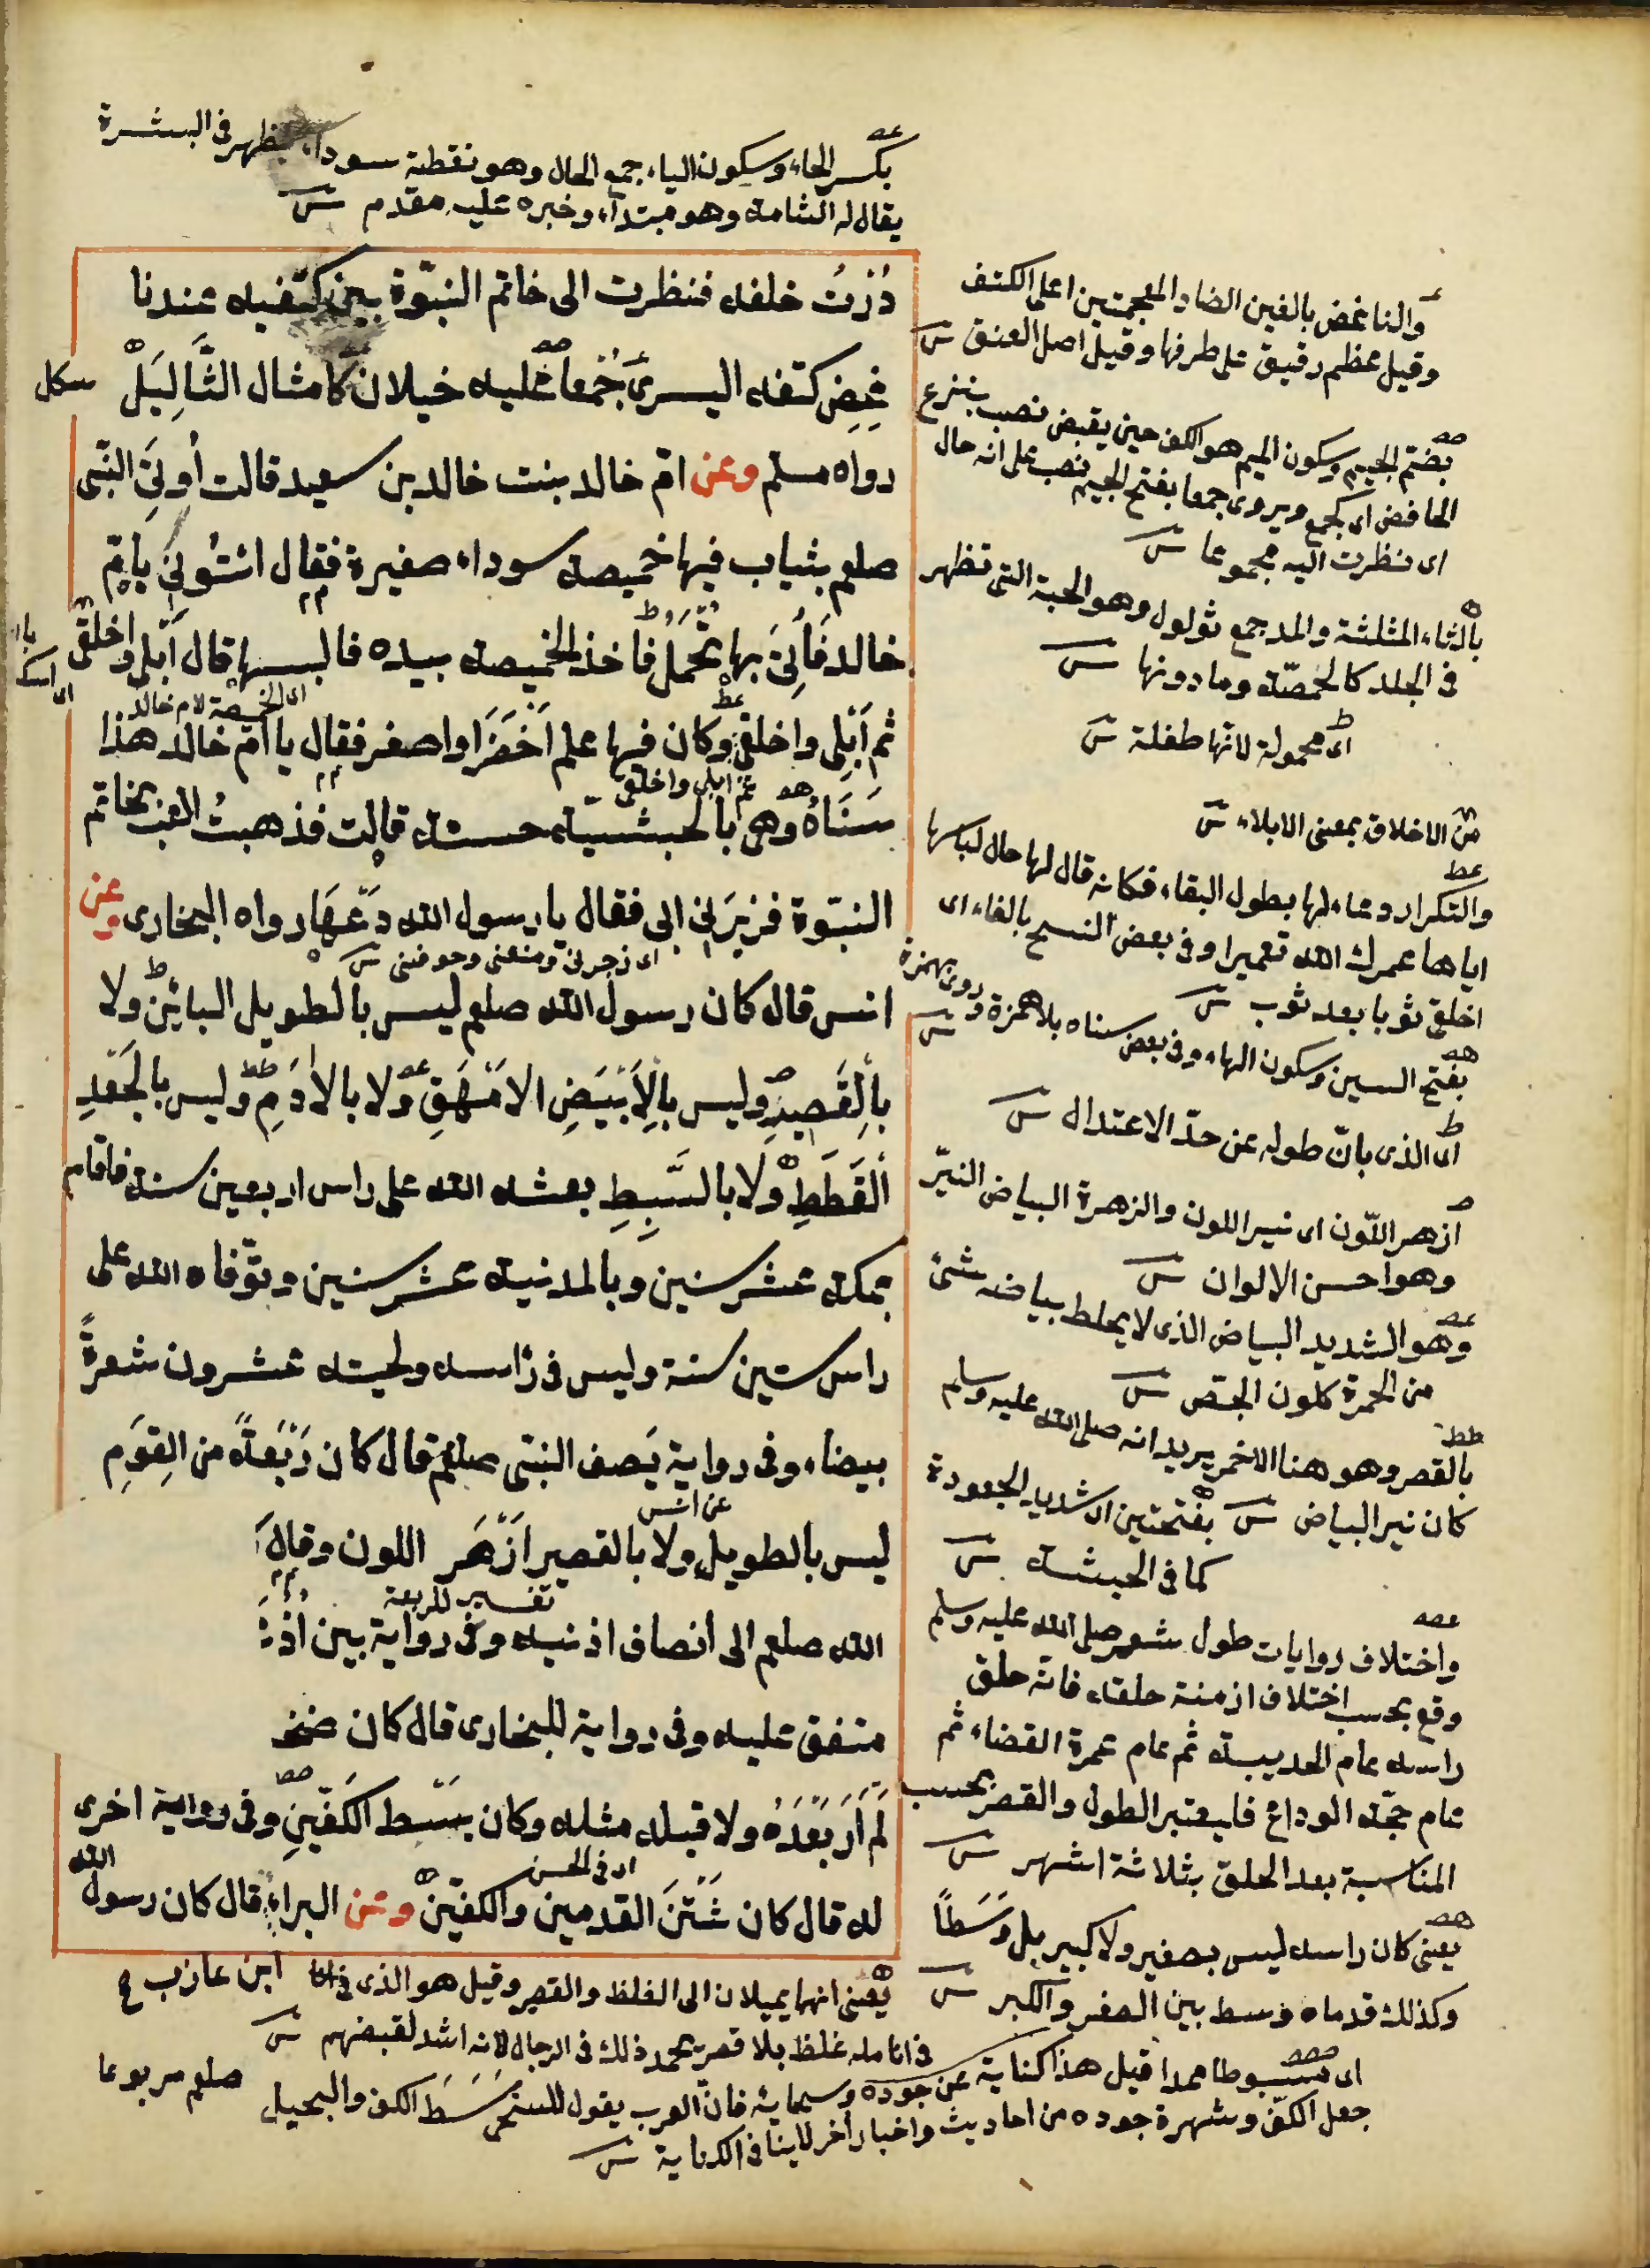 بكسر الخاء وسكون الياء جمع الخال وهو نقطة سوداء يظهر فى البشرة
يقال له الشامة وهو مبتداء وخبره عليه مقدم
دُرْتُ خلفه فنظرت الى خاتم النبوّة بين كتفيه عندنا
غِضِ كتفه اليسرىَ جُمْعا عليه خيلان كامثال الثَّالِيَلْ
رواه مسلم وعن امّ خالد بنت خالد بن سعيد قالت اُوتِىَ النّبى
صلعم بثياب فيها خميصة سوداء صغيرة فقال ائتُونِىَ بامّ
خالد فَاُتِىَ بها تُحْمَل فاخذ الخميصة بيده فالبسها قال اَبْلِى واخلقى
اى الخميصة لام خالد
ثم اَبْلِى واخلقى وكان فيها علم اَخْضَرَ او اصفر فقال يا امّ خالد هذا
ثم ابلى واخلقى
سَنَاهْ وهى بالحبشيّة حسنة قالت فذهبتُ العب بخاتم
النبوّة فزبرَنِى ابى فقال يا رسول الله دَعْهَا رواه البخارى وعن
اى زجرنى ومنعنى وخوفنى
انس قال كان رسول الله صلعم ليس بالطويل البائِن ولا
بالْقَصِيرِ وليس بالِاَبْيَضِ الامْهَقِ ولا بالاٰدَمِ وليس بالجَعْدِ
الْقَطَطِ ولا بالسَّبِطِ بعثه الله على راس اربعين سنة فاقام
بمكة عشر سنين وبالمدنية عشر سنين وتوّفاه الله على
راس ستين سنة وليس فى رأسه ولحيته عشرون شعرةً
بيضاء وفى رواية يَصف النبّى صلعم قال كان رَبْعَةً من القِوَمِ
عن انس
ليس بالطويل ولا بالقصير اَزْهَر اللون وقال
تفسير للربعة
الله صلعم الى أنصاف اذنيه وفى رواية بين اُذُ
متفق عليه وفى رواية للبخارى قال كان ضخ
لَمْ اَرَ بَعْدَهُ ولا قبله مثله وكان بسّط الكَفّينِ وفى رواية اخرى
اى فى الحسن
له قال كان شَثْنَ القدمين والكفّين وعن البراءِ قال كان رسول الله
ابن عازب
يعنى انهما يميلان الى الغلظ والقصر وقيل هو الذى
فى انامله غلظ بلا قصر يحمد ذلك فى الرجال لانه اشد لقبضهم
صلعم مربوعا
والناغض بالغين الضاد المعجمتين اعلى الكتف
وقيل عظم رقيق على طرفها وقيل اصل العنق
بضّم الجيم وسكون الميم هو الكف حين يقبض نصب بنزع
الخافض اى كجمع ويروى جمعا بفتح الجيم نصب على انه حال
اى نظرت اليه مجموعا
بالثاء المثلثة والمد جمع ثولول وهو الحبة التى تظهر
فى الجلد كالحمصّة وما دونها
اى محمولة لانّها طفلة
من الاخلاق بمعنى الابلاء
والتكرار دعاء لها بطول البقاء فكانه قال لها حال لباسها
اياها عمرك الله تعميرا وفى بعض النسخ بالفاء اى
اخلق ثوبا بعد ثوب
بفتح السين وسكون الهاء وفى بعض سناه بلا همزة وروى بهمزة
اى الذى بانّ طوله عن حدّ الاعتدال
ازهر اللّون اى نير اللون والزهرة البياض النيّر
وهو احسن الالوان
وهو الشديد البياض الذى لا يخلط بياضه شئ
من الحمرة كلون الجصّ
بالقصر وهو هنا الاحمر يريد انه صلى الله عليه وسلم
كان نير البياض بفتحتين اى شديد الجعودة
كما فى الحبشة
واختلاف روايات طول شعر صلى الله عليه وسلم
وقع بحسب اختلاف ازمنة حلقه فانّه حلق
راسه عام الحديبية ثم عام عمرة القضاء ثم
عام حجّة الوداع فليعتبر الطول والقصر بحسب
المناسبة بعد الحلق بثلاثة اشهر
يعنى كان راسه ليس بصغير ولا كبير بل وَسَطًا
وكذلك قدماه وسط بين الصغر والكبر
اى مبسوطا ممدا قيل هذا كناية عن جوده وسخائه فان العرب يقول للسخى بسط الكف والبخيل
جعل الكفّ وشهرة جوده من احاديث واخبار أخر لا ينافى الكناية